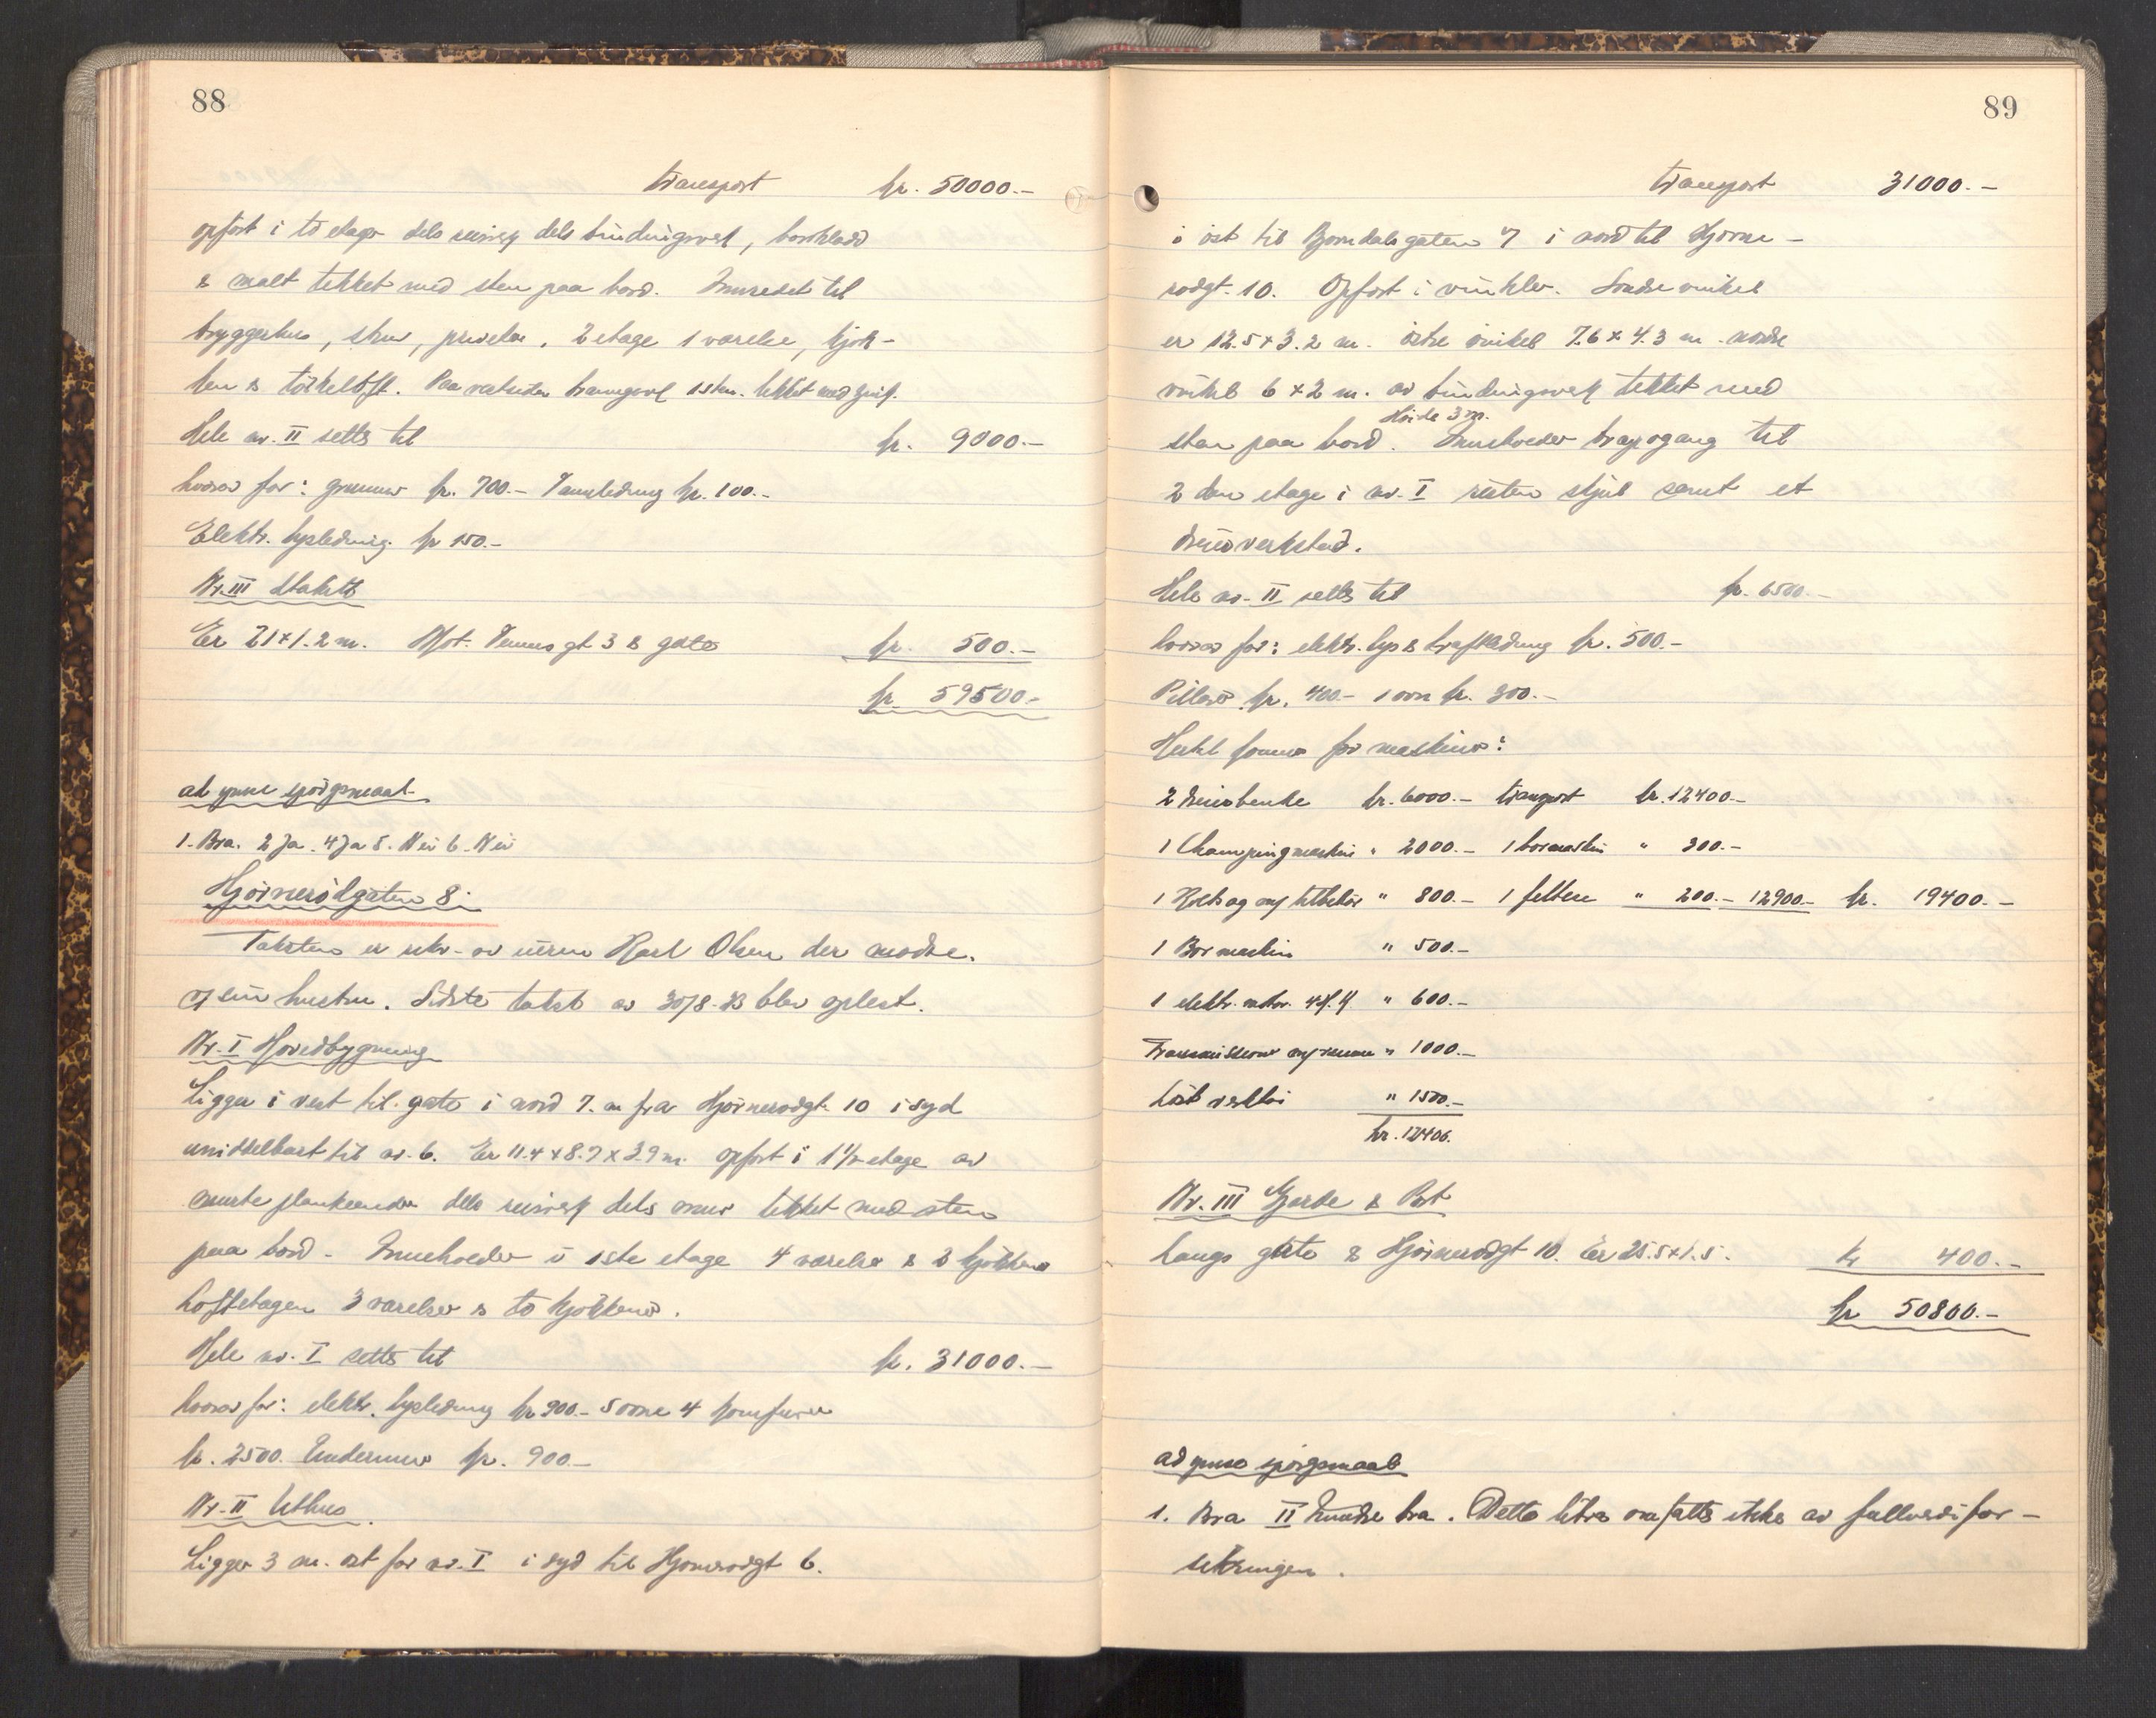 88
transport kr. 50000.-
opført i to etager dels reisverk dels bindingsverk, bordklædd
& malt tekket med sten paa bord. Innredet til
bryggerhus, skur, priveter. 2 etage 1 værelse, kjøk-
ken & tørkeloft. Paa vestsiden brangavl 1 sten. tekket med zink.
Hele nr. II settes til kr. 9000.-
hvorav for: grunnmur kr. 700.- Vannledning kr. 100.-
Elektr. lysledning kr 150.-
Nr. III Stakitt
Er 21×1.2 m. Mot. Venus gt 3 & gate kr. 500.-
kr 59500.-
ad gene spørgsmaal
1. Bra. 2 Ja. 4 Ja 5. Nei 6. Nei
Hjørnerødgaten 8.
Taksten er rekv. av eieren Karl Olsen der møtte.
og sin hustru. Sidste takst av 30/8-23 blev oplest.
Nr. I Hovedbygning
Ligger i vest til gate i nord 7. m fra Hjørnerødgt. 10 i syd
umiddelbart til nr. 6. Er 11.4×8.7×3.9 m. opført i 1½ etage av
murte plankeender dels reisverk dels mur tekket med sten
paa bord - Inneholder i 1ste etage 4 værelser & 2 kjøkkener
loftetagen 3 værelser & to kjøkkener.
Hele nr. I settes til kr. 31000.-
hvorav for: elektr. lysledning kr 900.- 5 ovne 4 komfurer
kr. 2500. Undermur kr. 900.-
Nr. II Uthus.
Ligger 3 m. øst for nr. I i syd til Hjørnerødgt 6.
89
transport 31000.-
i øst til Bjørndalsgaten 7 i nord til Hjørne-
rødgt. 10. Opført i vinkler. Søndre vinkel
er 12.5×3.2 m. østre vinkel 7.6×4.3 m. nordre
vinkel 6×2 m. av bindingsverk tekket med
Høide 3 m.
sten paa bord. Inneholder trapogang til
2 den etage i nr. I resten skjul samt et
dreieverksted.
Hele nr. II settes til kr. 6500.-
hvorav for: elektr. lys & kraftledning kr. 500.-
Pillarer kr. 400.- 1 ovn kr. 300.-
Hertil kommer for maskiner:
2 Dreiebenke kr. 6000.- transport kr. 12400.-
1 Champingmaskin " 2000.- 1 bormaskin " 300.-
1 Holtzag m/ tilbehør " 800.- 1 feltese " 200.- 12900.- kr. 19400.-
1 Bor maskin " 500.-
1 elektr. motor. 4 H.K " 600.-
Transmisjoner m/ remmer " 1000.-
Løst verktøi " 1500.-
kr. 12400.
Nr. III Gjerde & Port
Langs gate & Hjørnerødgt 10. Er 25.5×1.5. kr 400.-
kr 50800.-
ad gene spørgsmaal
1. Bra II Mindre bra. Dette litra omfattes ikke av fullverdifor-
sikringen.